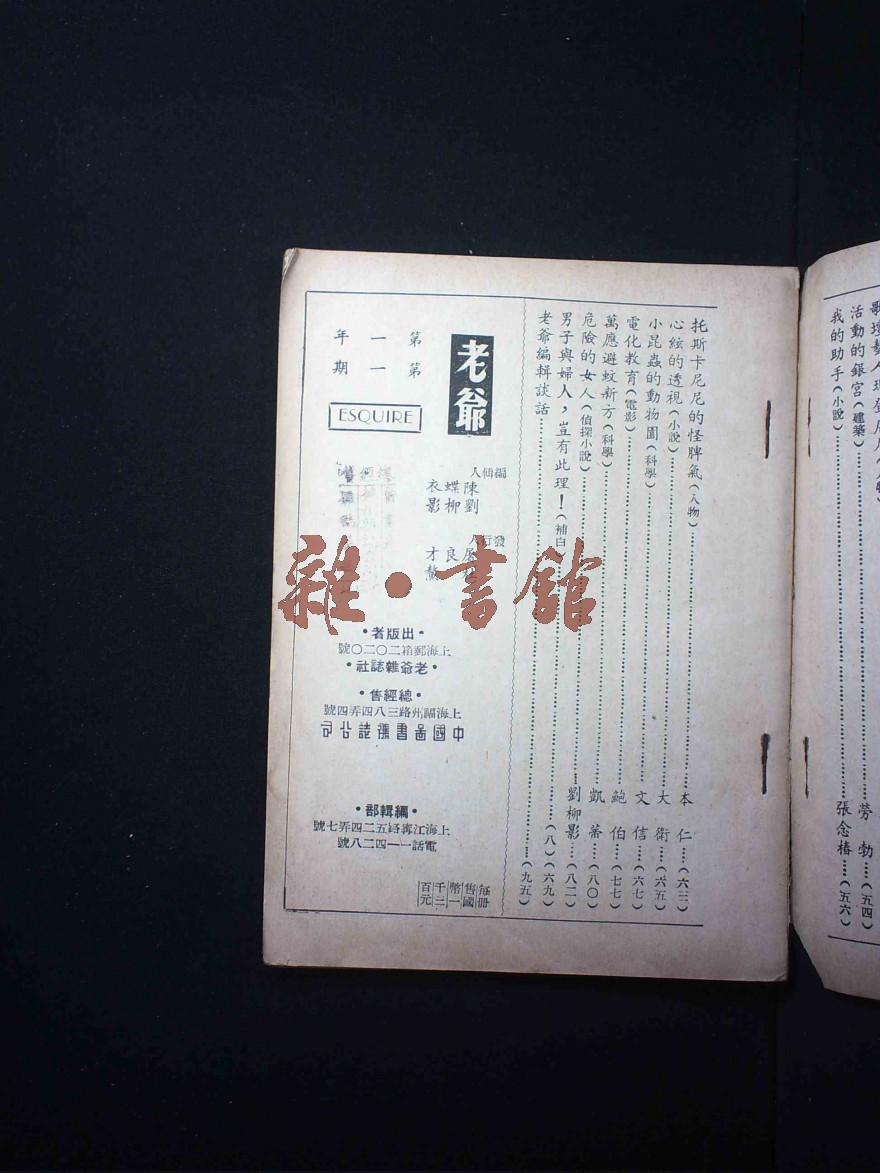 活動的銀宮(建築)……勞勃…(五四)
我的助手(小說)……張念椿…(五六)
托斯卡尼尼的怪脾氣(人物)……本仁…(六三)
心絃的透視(小說)……大衛…(六五)
小昆蟲的動物園(科學)……文信…(六七)
電化教育(電影)……鮑伯…(七七)
萬應避蚊新方(科學)……凱蒂…(八〇)
危險的女人(偵探小說)……劉柳影…(八二)
男子與婦人,豈有此理!(補白)……(八)(六九)
老爺編輯談話……(九五)
老爺
第一年
第一期
ESQUIRE
編輯人
陳蝶衣
劉柳影
發行人
良才
•出版者•
上海郵箱二〇二〇號
•老爺雜誌社•
•總經售•
上海福州路三八四弄四號
中國圖書雜誌公司
•編輯部•
上海江寧路五二四弄七號
電話一一四二八號
每冊售國幣一千三百元
雜•書館